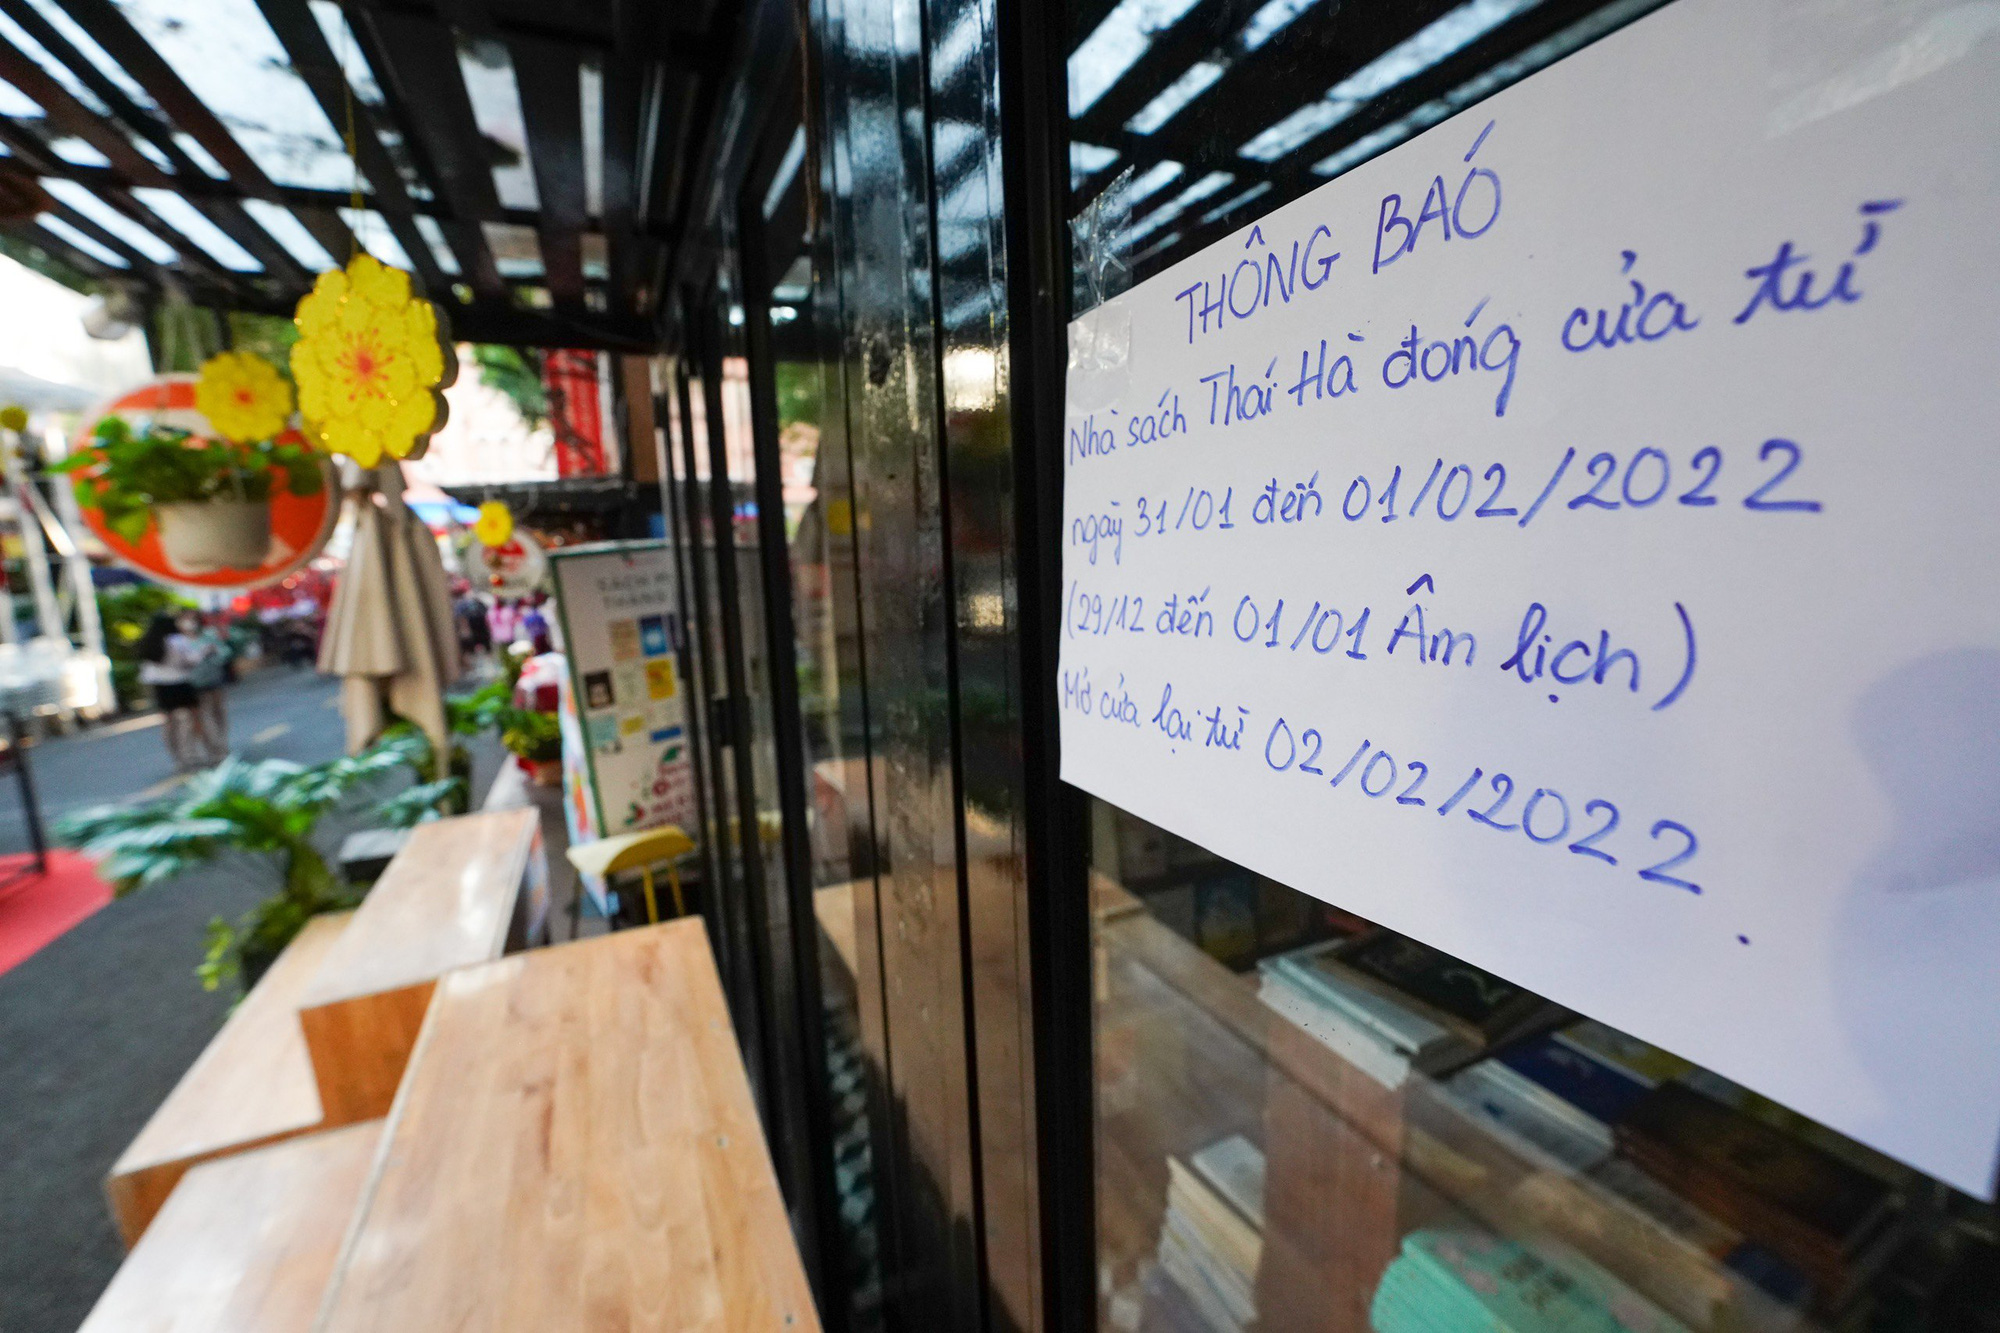 THÔNG BÁO
Nhà sách Thái Hà đóng cửa từ
ngày 31/01 đến 01/02/2022
(29/12 đến 01/01 Âm lịch)
Mở cửa lại từ 02/02/2022.